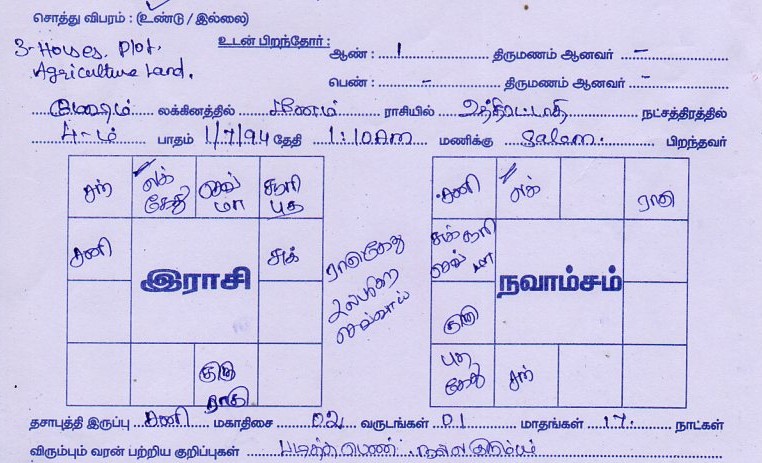 சொத்து விபரம் : (உண்டு / இல்லை)
3-Houses, Plot, உடன் பிறந்தோர் : ஆண் : 1 திருமணம் ஆனவர் -
Agriculture Land. பெண் : - திருமணம் ஆனவர் -
மேஷம் லக்கினத்தில் மீனம் ராசியில் உத்திரட்டாதி நட்சத்திரத்தில்
4-ம் பாதம் 1/7/94 தேதி 1:10AM மணிக்கு Salem. பிறந்தவர்
சந் லக் செவ் சூரி
கேது மா புத
சனி சுக்
இராசி
குரு
ராகு
ராகு கேது
செவ்வாய்
சனி லக் ராகு
சுக் சூரி
செவ் மா
நவாம்சம்
குரு
புத சந்
கேது
தசாபுத்தி இருப்பு சனி மகாதிசை 02 வருடங்கள் 01 மாதங்கள் 17 நாட்கள்
விரும்பும் வரன் பற்றிய குறிப்புகள் படித்த பெண். நல்ல குடும்பம்